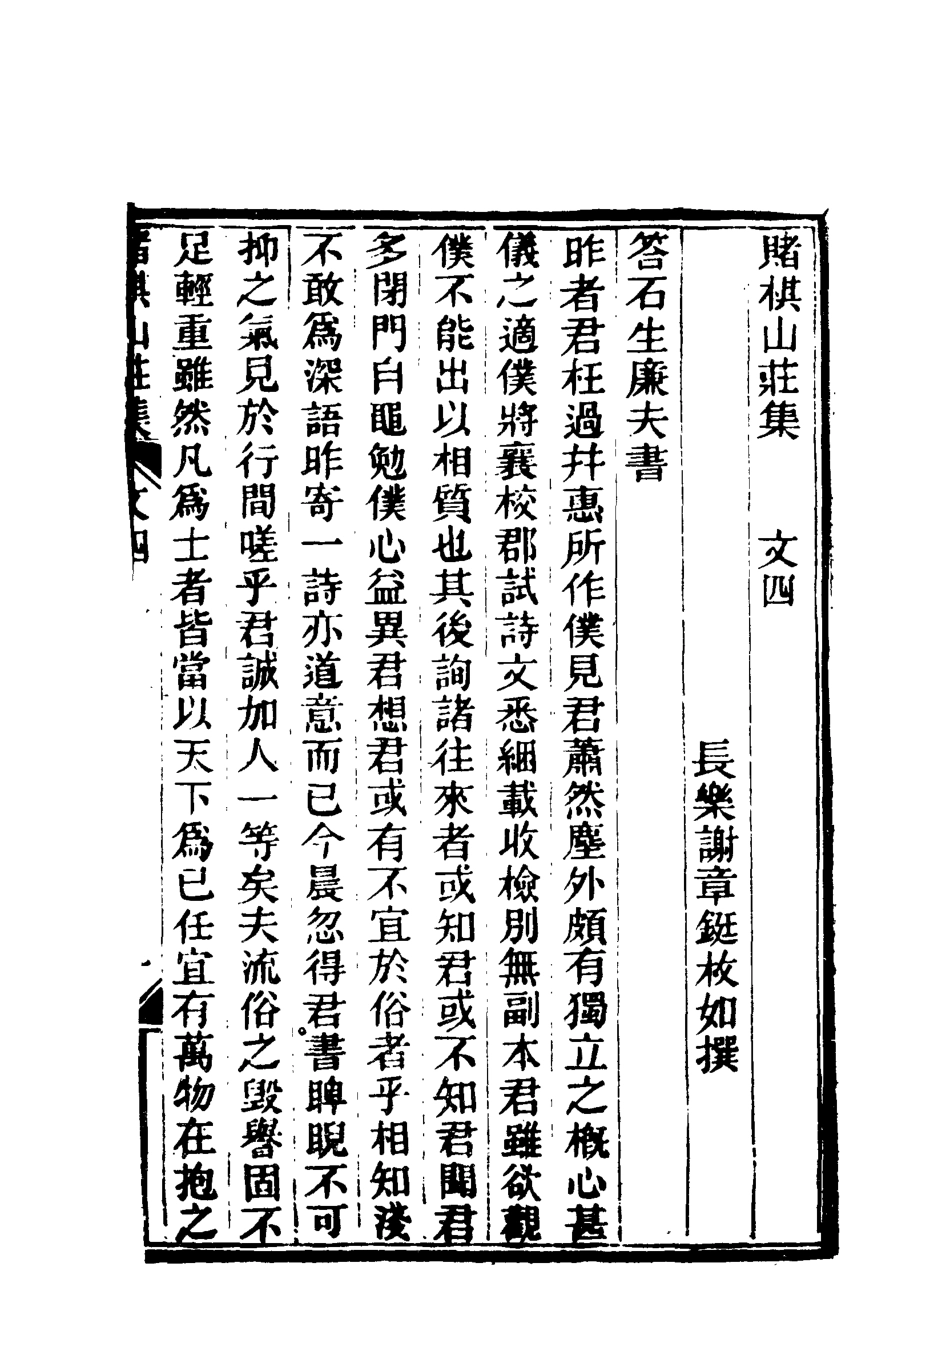 賭棋山莊集　　文四
長樂謝章鋌枚如撰
答石生廉夫書
昨者君枉過并惠所作僕見君蕭然塵外頗有獨立之概心甚
儀之適僕將襄校郡試詩文悉細載收檢別無副本君雖欲觀
僕不能出以相質也其後詢諸往來者或知君或不知君聞君
多閉門自黽勉僕心益異君想君或有不宜於俗者乎相知淺
不敢爲深語昨寄一詩亦道意而已今晨忽得君書睥睨不可
抑之氣見於行間嗟乎君誠加人一等矣夫流俗之毀譽固不
足輕重雖然凡爲士者皆當以天下爲已任宜有萬物在抱之
賭棋山莊集　文四